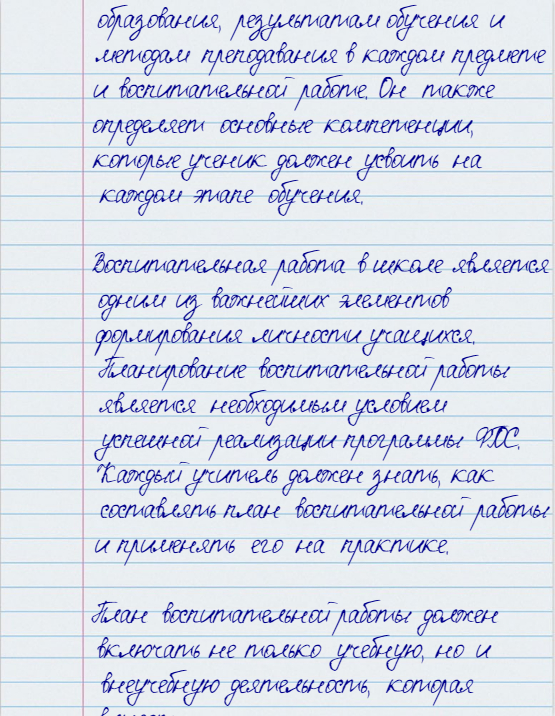 образования, результатам обучения и
методам преподавания в каждом предмете
и воспитательной работе. Он также
определяет основные компетенции,
которые ученик должен усвоить на
каждом этапе обучения.
Воспитательная работа в школе является
одним из важнейших элементов
формирования личности учащихся.
Планирование воспитательной работы
является необходимым условием
успешной реализации программы ФГОС.
Каждый учитель должен знать, как
составлять план воспитательной работы
и применять его на практике.
План воспитательной работы должен
включать не только учебную, но и
внеучебную деятельность, которая